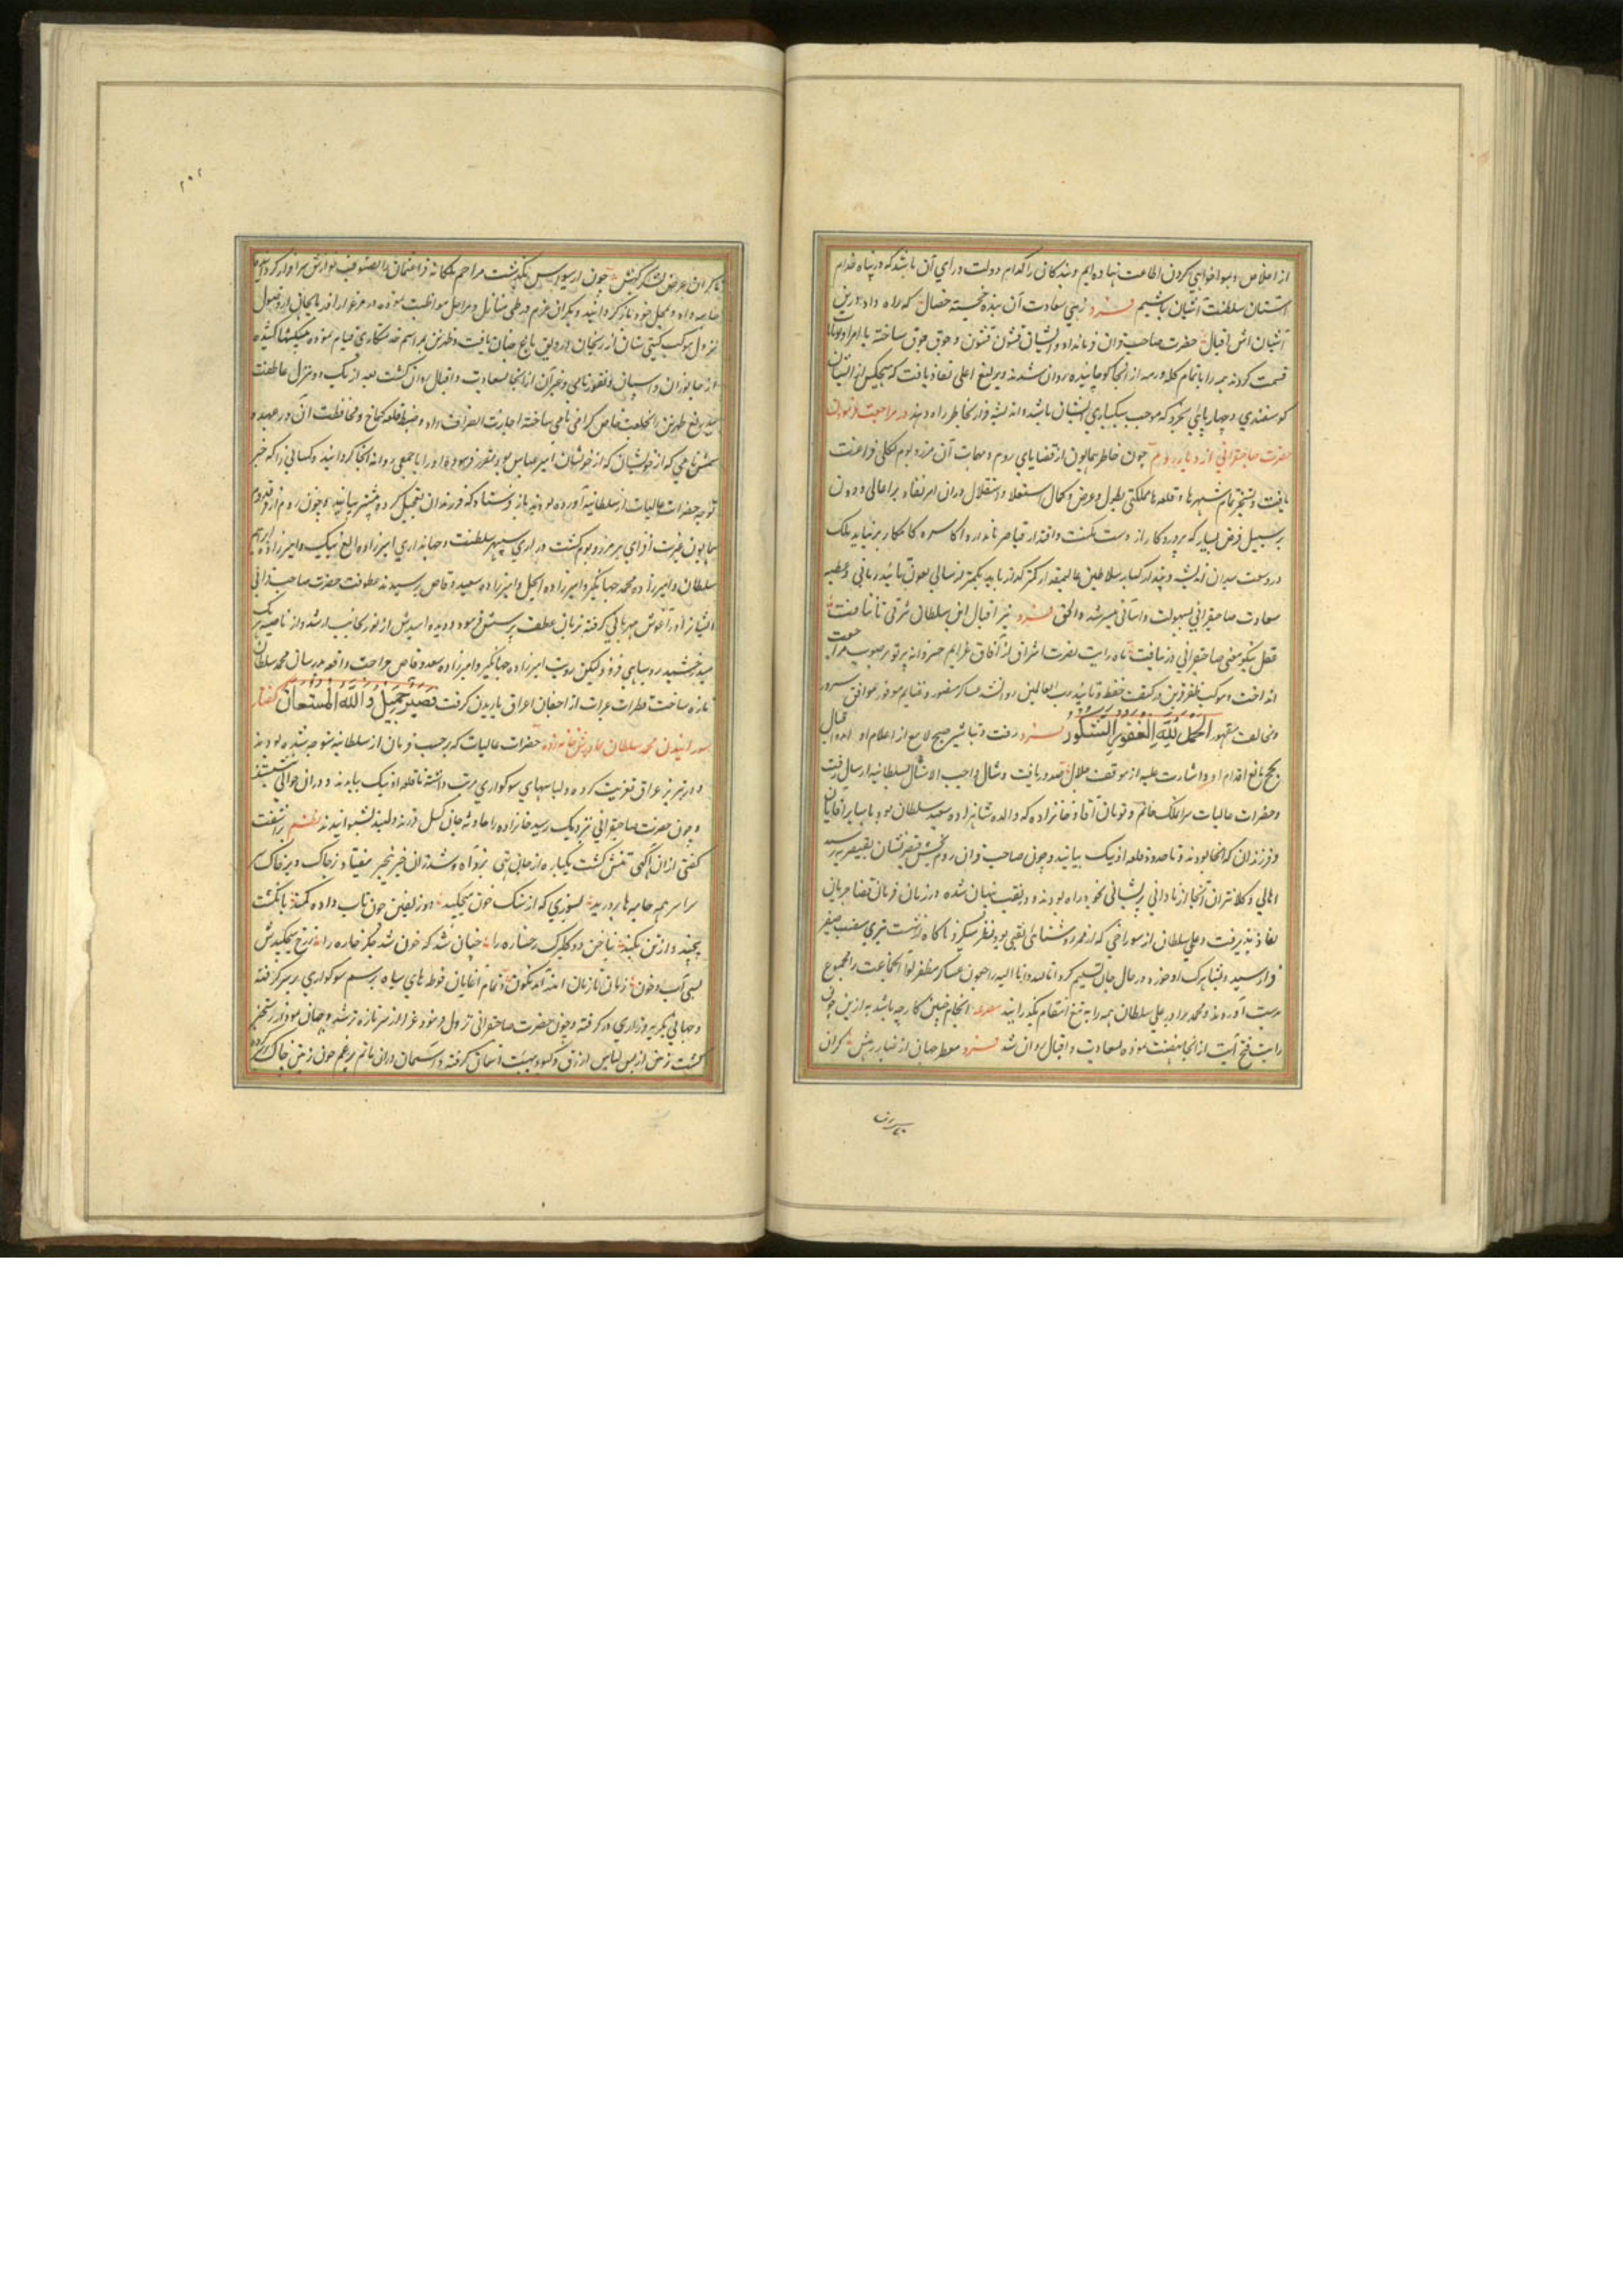 از اخلاص و هواخواهی کردن اطاعت نهاده ایم و بندکان را کدام دولت ورای آن باشد که در پناه خدام
آستان سلطنت آشیان باشیم فرد زهی سعادت آن بنده خجسته خصال که راه داد بدین
آشیان اش اقبال حضرت صاحب قران فرمان داد و ایشان قشون قشون و جوق جوق ساخته با امرا و
قسمت کردند و همه را با تمام کله و رمه از انجا کوچانیده روان شدند و یرلیغ اعلی نفاذ یافت که هیچکس از ایشان
کوسفندی و چهارپائی نخرد که موجب سبکباری ایشان باشد و اندیشه فرار بخاطر راه دهند در مراجعت فرمودن
حضرت صاحبقرانی از دیار روم چون خاطر همایون از قضایای روم و مهمات آن مرز و بوم بکلی فراغت
یافت و تسخیر تمام شهرها و قلعه ها مملکتی بطول و عرض و کمال استعلا و استقلال دران امر نفاذ بر اعالی و دون
بر سبیل فرض بسیار که پروردکار از دست مکنت و اقتدار قیاصر نامدار و اکاسره کامکار برنیاید بلک
در وسعت میدان اندیشه و پندار کبار سلاطین عالیمقدار کمتر کذار یابد بکمتر از سالی بعون تائید ربانی و عطیه
سعادت صاحبقرانی بسهولت و آسانی میسر شد و الحق فرد نیر اقبال این سلطان شرقی تا نتافت
عقل نیکو معنی صاحبقرانی درنیافت ماه رایت نصرت اشراق از آفاق عزایم خسروانه پرتو بر صوب مراجعت
انداخت و موکب ظفر قرین در کنف حفظ و تائید رب العالمین روان شد عساکر منصور و غنایم موفور موافق مسرور
و مخالف مقهور الحمد لله الغفور الشکور فرد رفت و تباشیر صبح لامع از اعلام او آمد و اقبال
نجح تابع اقدام او و اشارت علیه از موقف جلال صدور یافت و مثال واجب الامتثال بسلطانیه ارسال رفت
و حضرات عالیات سرای ملک خانم و تومان آقا و خانزاده که والده شاهزاده سعید سلطان بود با سایر آقایان
و فرزندان که انجا بودند تا حدود قلعه اونیک بیایند و چون صاحب قران روم بخش قیصر نشان بقیصریه رسید
اهالی و کلانتران آنجا از نادانی پریشانی بخود راه بودند و در نقب پنهان شده در زمان فرمان قضا جریان
نفاذ پذیرفت و علی سلطان از سوراخی که از ممر روشنائی نقبی بود نظر میکرد ناکاه از شست تیری
فرا رسید و بشاهرک او خورد و در حال جان تسلیم کرد انا لله و انا الیه راجعون عساکر مظفر لوا انجماعت را مجموع
بدست آوردند و محمد برادر علی سلطان همه را به تیغ انتقام بکذرانید مصرع انجام چنین کار چه باشد به ازین چون
رایت فتح آیت از انجا نهضت نموده بسعادت و اقبال روان شد فرد معطر جهان از غبار رهش کران
بیرون
۲۰۲
تا کران عرض لشکر کهش چون از سیواس بکذشت مراحم ملکانه قراعثمان را بصنوف نوازش سرافراز کردانید
جامه داد و بمحل خود باز کردانید و یکران عزم در طی منازل و مراحل مواظبت نموده در مرغزار ارزنجان از وصول
نزول موکب کیتی ستان ارزنجان رونق باغ جنان یافت و طهرتن بمراسم خدمتکاری قیام نموده پیشکشها کشیده
از جانوران و اسپان و نقود نامی و غیر آن از انجا بسعادت و اقبال روان کشت بعد از یک دو منزل عاطفت
بیدریغ طهرتن را بخلعت خاص کرامی نامی ساخته اجازت انصراف داد و ضبط قلعه کماخ و محافظت آن در عهده
شمس نامی که از خویشان امیر عباس بود مقرر فرمود و او را با جمعی روانه انجا کردانید و کسانی را که خبر
توجه حضرات عالیات از سلطانیه آورده بودند باز فرستاد که فرزندان تعجیل کرده پیشتر بیایند و چون روم از قدوم
همایون غیرت افزای هر مرز و بوم کشت دراری سپهر سلطنت و جهانداری امیرزاده الغ بیک و امیرزاده ابراهیم
سلطان و امیرزاده محمد جهانکیر و امیرزاده ایجل و امیرزاده سعد وقاص رسیدند عطوفت حضرت صاحب قرانی
ایشان را در آغوش مهربانی کرفته زبان عطف پرسش فرمود و دیده امیدش از نور جانب ارشد و از ناصیه هر یک
خورشید و ماهی فزود لیکن رویت امیرزاده جهانکیر و امیرزاده سعد وقاص جراحت واقعه پدرشان محمد سلطان
تازه ساخت قطرات عبرات از اجفان اعراق باریدن کرفت فصبر جمیل والله المستعان کفتار
محمد سلطان مادرش خانزاده حضرات عالیات که برحسب فرمان از سلطانیه متوجه شده بودند
در تبریز عراق تعزیت کرده و لباسهای سوکواری مرتب داشته تا قلعه اونیک بیامدند
و چون حضرت صاحبقرانی نزدیک رسید خانزاده را حادثه جان کسل فرزند دلبند بشنوانیدند نظم برآشفت
کفتی از ان آکهی تنش کشت یکباره از جان تهی بزد آه و شد زان خبر بیخبر بیفتاد بر خاک و بر خاک سر
سراسر همه جامه ها بردرید بسوزی که از سنک خون میچکید دو زلفین چون تاب داده کمند بانکشت
پیچید و از تن بکند بناخن دو کلبرک رخساره را چنان شد که خون شد جکر خاره را ز رخ میچکیدش
بسی آب و خون زمان تا زمان اندر آمد نکون تمام آغایان فوطه های سیاه برسم سوکواری بر سر کرفته
و جهانی بکریه و زاری درکرفته و چون حضرت صاحبقرانی نزول فرمود عزا از سر تازه تر شد و جهان نمودار رستخیز
کشت زمین از بس لباس ازرق و کبود هیئت آسمان کرفته و آسمان دران ماتم پر غم چون زمین خاک بر سر کرده